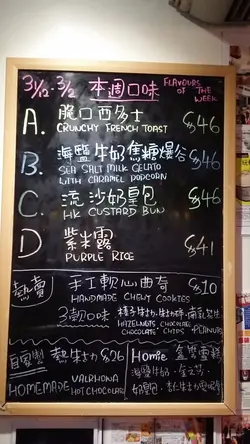 31/12-3/2 本週口味 FLAVOURS OF THE WEEK
A. 脆口西多士 $46
CRUNCHY FRENCH TOAST
B. 海鹽牛奶焦糖爆谷 $46
SEA SALT MILK GELATO
WITH CARAMEL POPCORN
C. 流沙奶皇包 $46
HK CUSTARD BUN
D 紫米露 $41
PURPLE RICE
熱賣 手工軟心曲奇 $10
HANDMADE CHEWY COOKIES
3款口味:
HAZELNUTS CHOCOLATE
CHOCOLATE CHIPS PEANUTS
自家製 熱朱古力 $26
HOMEMADE VALRHONA
HOT CHOCOLATE
Homie